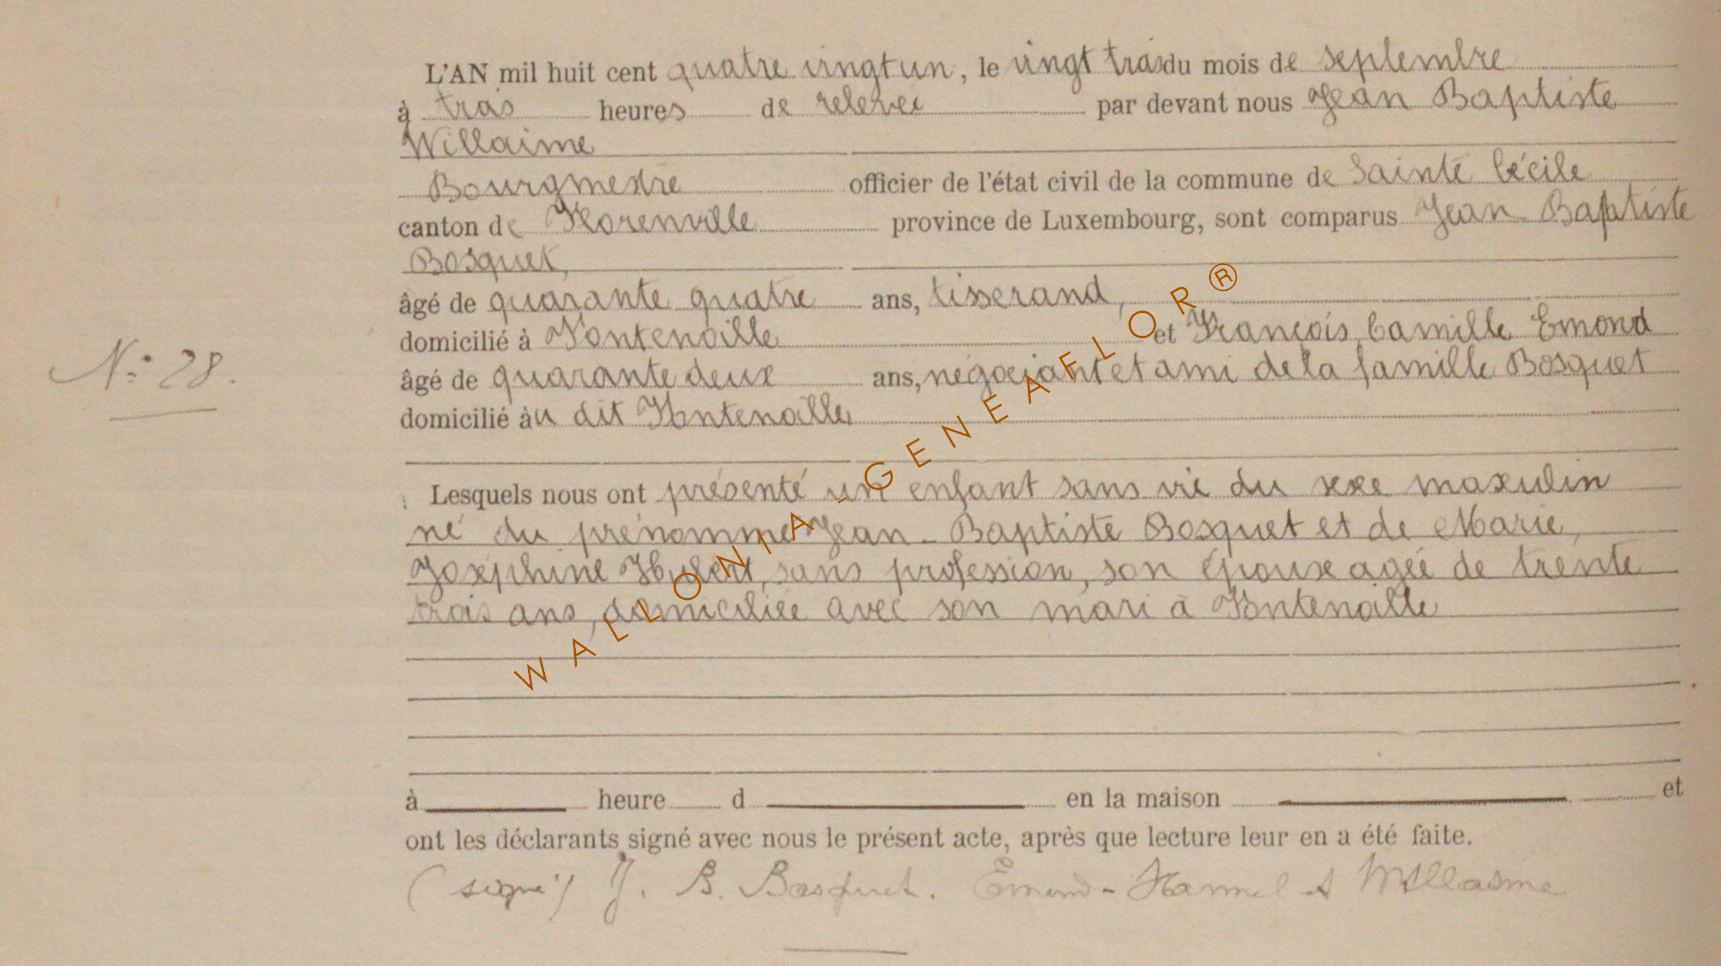 L'AN mil huit cent quatre vingt un, le vingt trois du mois de septembre
à trois heures de relevée par devant nous Jean Baptiste
Willaime
Bourgmestre officier de l'état civil de la commune de Sainte Cécile
canton de Florenville province de Luxembourg, sont comparus Jean Baptiste
Bosquet,
âgé de quarante quatre ans, tisserand,
domicilié à Fontenoille et François, Camille Emond
N° 28.
âgé de quarante deux ans, négociant et ami de la famille Bosquet
domicilié au dit Fontenoille
Lesquels nous ont présenté un enfant sans vie du sexe masculin
né du prénommé Jean-Baptiste Bosquet et de Marie,
Joséphine Hubert, sans profession, son épouse agée de trente
trois ans, domiciliée avec son mari à Fontenoille
à heure d en la maison et
ont les déclarants signé avec nous le présent acte, après que lecture leur en a été faite.
(signé) J. B. Bosquet. Emond - & Willaime
WALLONIA - GENEAFLOR®